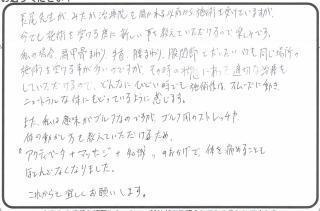 尾尾先生が、みたか治療院を開かれる以前から施術を受けていますが、
今でも施術を受ける度に新しい事を教えていただけるので楽しみです。
私の場合、肩甲骨まわり、手首、腰まわり、股関節とだいたいいつも同じ場所の
施術を受ける事が多いのですが、その時の状態にあって適切な治療を
していただけるので、どんなにひどい時でも施術後は、スムーズに動き
ニュートラルな体にもどっているように感じます。
また、私は趣味がゴルフなのですが、ゴルフ用のストレッチや
体の動かし方も教えていただけるため、
"アクティベータ+マッサージ+知識"のおかげで、体を痛めることも
ほとんどなくなりました。
これからも宜しくお願いします。